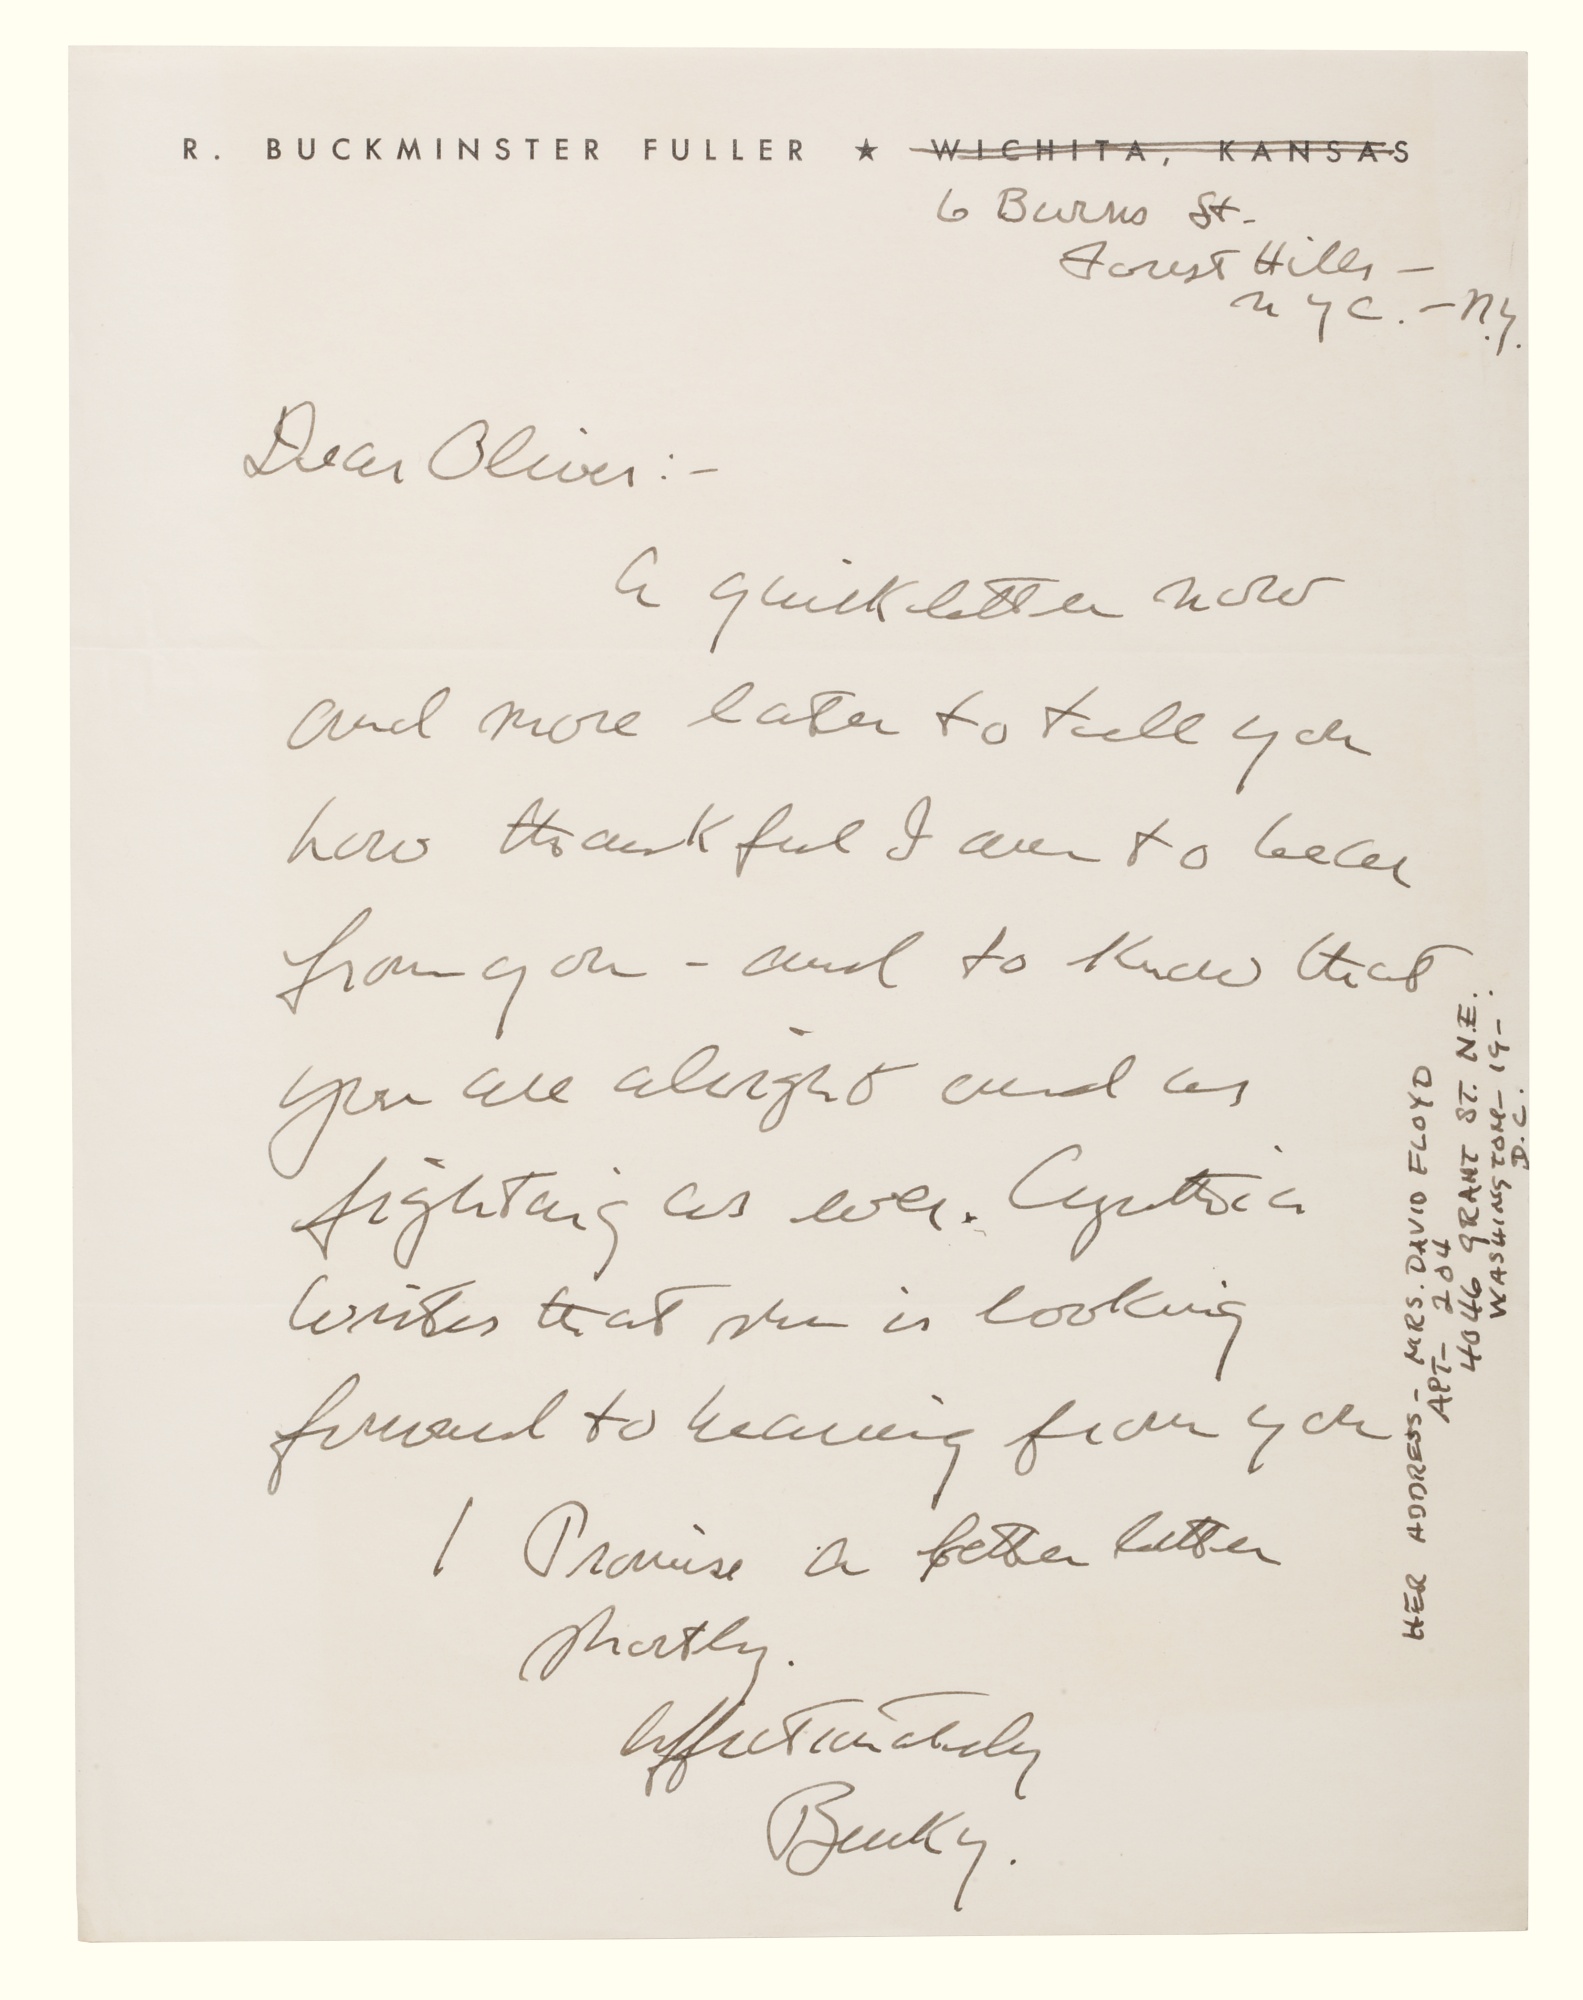 R. BUCKMINSTER FULLER ★ WICHITA, KANSAS
6 Burns St.
Forest Hills —
NYC. — N.Y.
Dear Oliver:-
A quick letter now
and more later to tell you
how thankful I am to hear
from you - and to know that
you are alright and as
fighting as ever. Cynthia
writes that she is looking
forward to hearing from you
I Promise a better letter
shortly.
Affectionately
Bucky.
HER ADDRESS - MRS. DAVID FLOYD
APT- 204
4046 GRANT ST. N.E.
WASHINGTON- 19-
D.C.